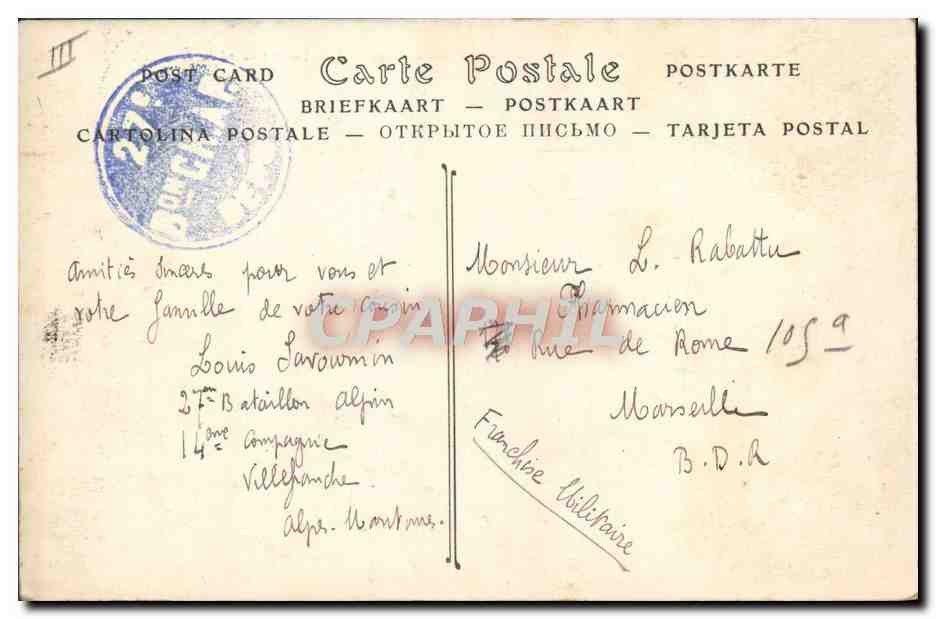 III
POST CARD Carte Postale POSTKARTE
BRIEFKAART — POSTKAART
CARTOLINA POSTALE — ОТКРЫТОЕ ПИСЬМО — TARJETA POSTAL
27e
Bon CHAS
Amitiés sincères pour vous et
votre famille de votre cousin
Louis Savournin
27em Bataillon Alpin
14eme Compagnie
Villefranche
Alpes-Maritimes.
Monsieur L. Rabattu
Pharmacien
Rue de Rome 105a
Marseille
B.D.R
Franchise Militaire
CPAPHIL